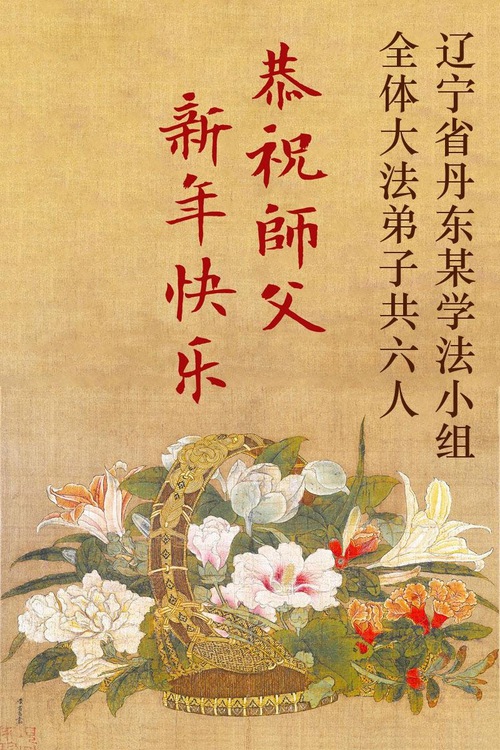 辽宁省丹东某学法小组
全体大法弟子共六人
恭祝師父
新年快乐